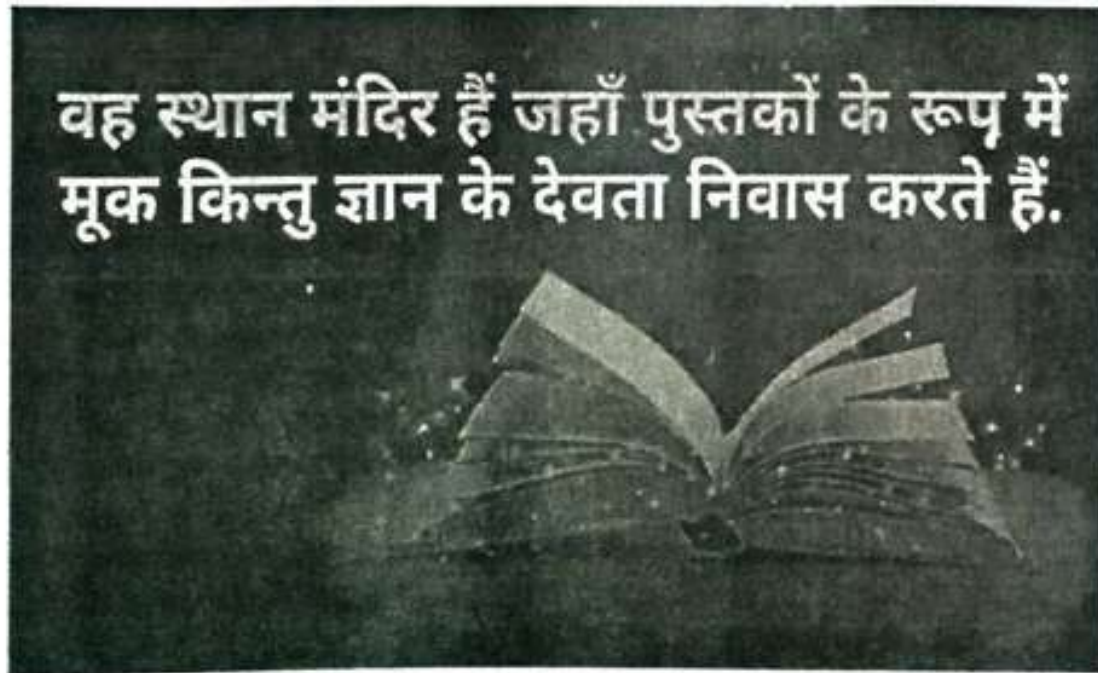 वह स्थान मंदिर हैं जहाँ पुस्तकों के रूप में
मूक किन्तु ज्ञान के देवता निवास करते हैं.